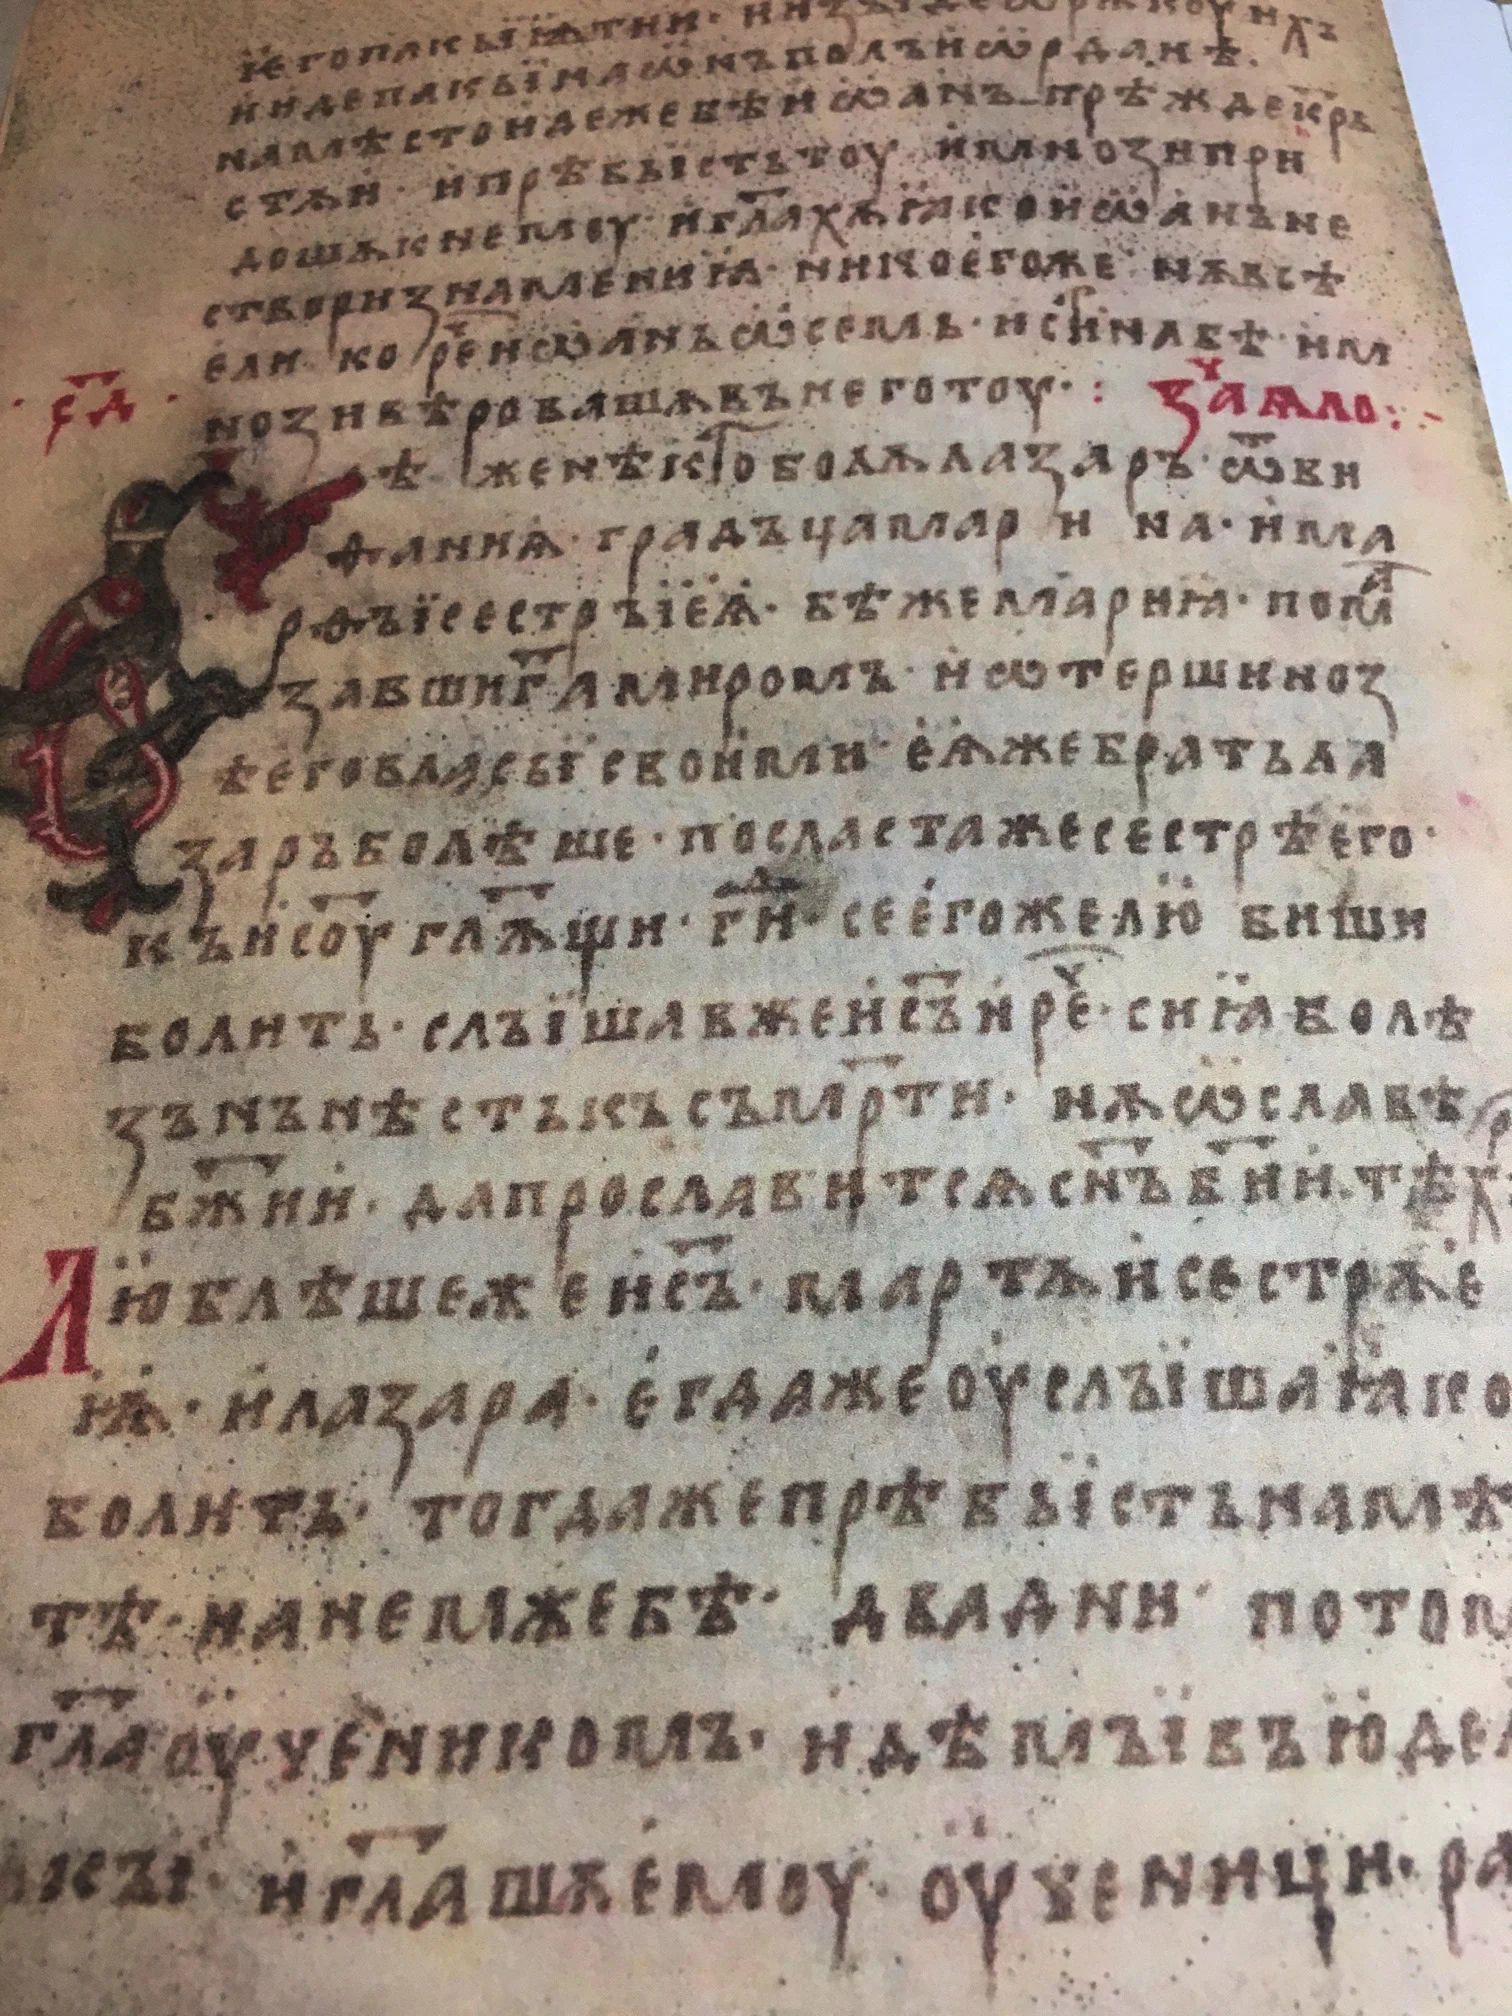 его пакы ѩти· и изꙑде ѿ рѫкоу ихъ
и иде пакꙑ на ѡнъ полъ иѡрдань.
на мѣсто идеже бѣ иѡанъ прѣжде кр҃ь
стѧи· и прѣбꙑстъ тоу· и мнози при
дошѫ к немоу· и гл҃ахѫ ꙗко иѡанъ не
створи знамениꙗ· никоегоже· нѫ всѣ
ели коре҃ иѡанъ ѡ семь· истина бѣ· и м
нози вѣровашѧ въ него тоу· : за҃ч ѧло :
·с҃д·
Бѣ же нѣкто болѧ лазаръ· ѿ ви
ѳаниѧ· градъца мариина· и ма
рѳꙑ сестрꙑ еѧ· бѣ же мариꙗ· пома
завши г҃а миромъ· и ѡтерши ноз
ѣ его власꙑ своими· еѧже братъ ла
заръ болѣше· посласта же сестрѣ его·
къ и҃соу гл҃ѫщи· г҃и· се егоже любиши
болитъ· слꙑшав же и҃съ и ре҃ч· сиꙗ болѣ
знъ нѣстъ къ съмр҃ти· нѫ ѡ славѣ
бж҃ии· да прославитсѧ сн҃ъ б҃ии· тѣх
Люблѣше же и҃съ· мартѫ и сестрѫ е
ѩ· и лазара· егда же оуслꙑша ꙗко
болитъ· тогда же прѣбꙑстъ на мѣ
тѣ· на немже бѣ· два дни· потом
гл҃а оученикомъ· идѣмꙑ въ юде
и гл҃ашѫ емоу оученици·